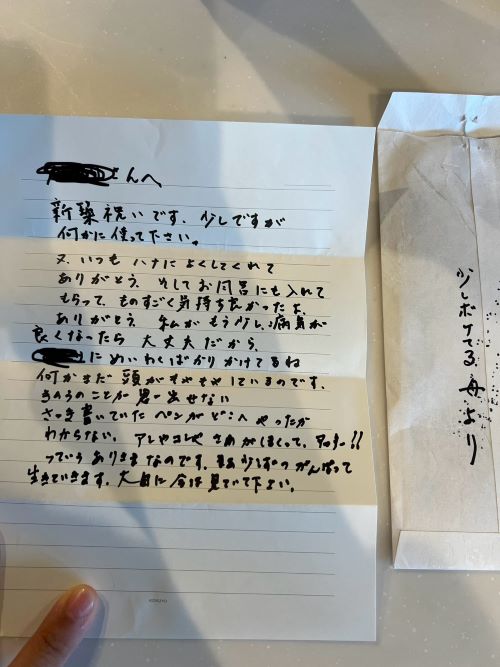 さんへ
新築祝いです、少しですが
何かに使って下さい。
又、いつもハナによくしてくれて
ありがとう、そしてお風呂にも入れて
もらって、ものすごく気持ち良かったよ、
ありがとう、私がもう少し、病気が
良くなったら 大丈夫だから、
にめいわくばかりかけてるね
何かまだ頭がもやもやしているのです、
きのうのことが思い出せない
さっき書いていたペンがどこへやったか
わからない、アレやコレやさがしまくって、!!
っていうありさまなのです、まあ少しずつがんばって
生きていきます、大目に今は見てて下さい。
KOKUYO
少しボケてる母より